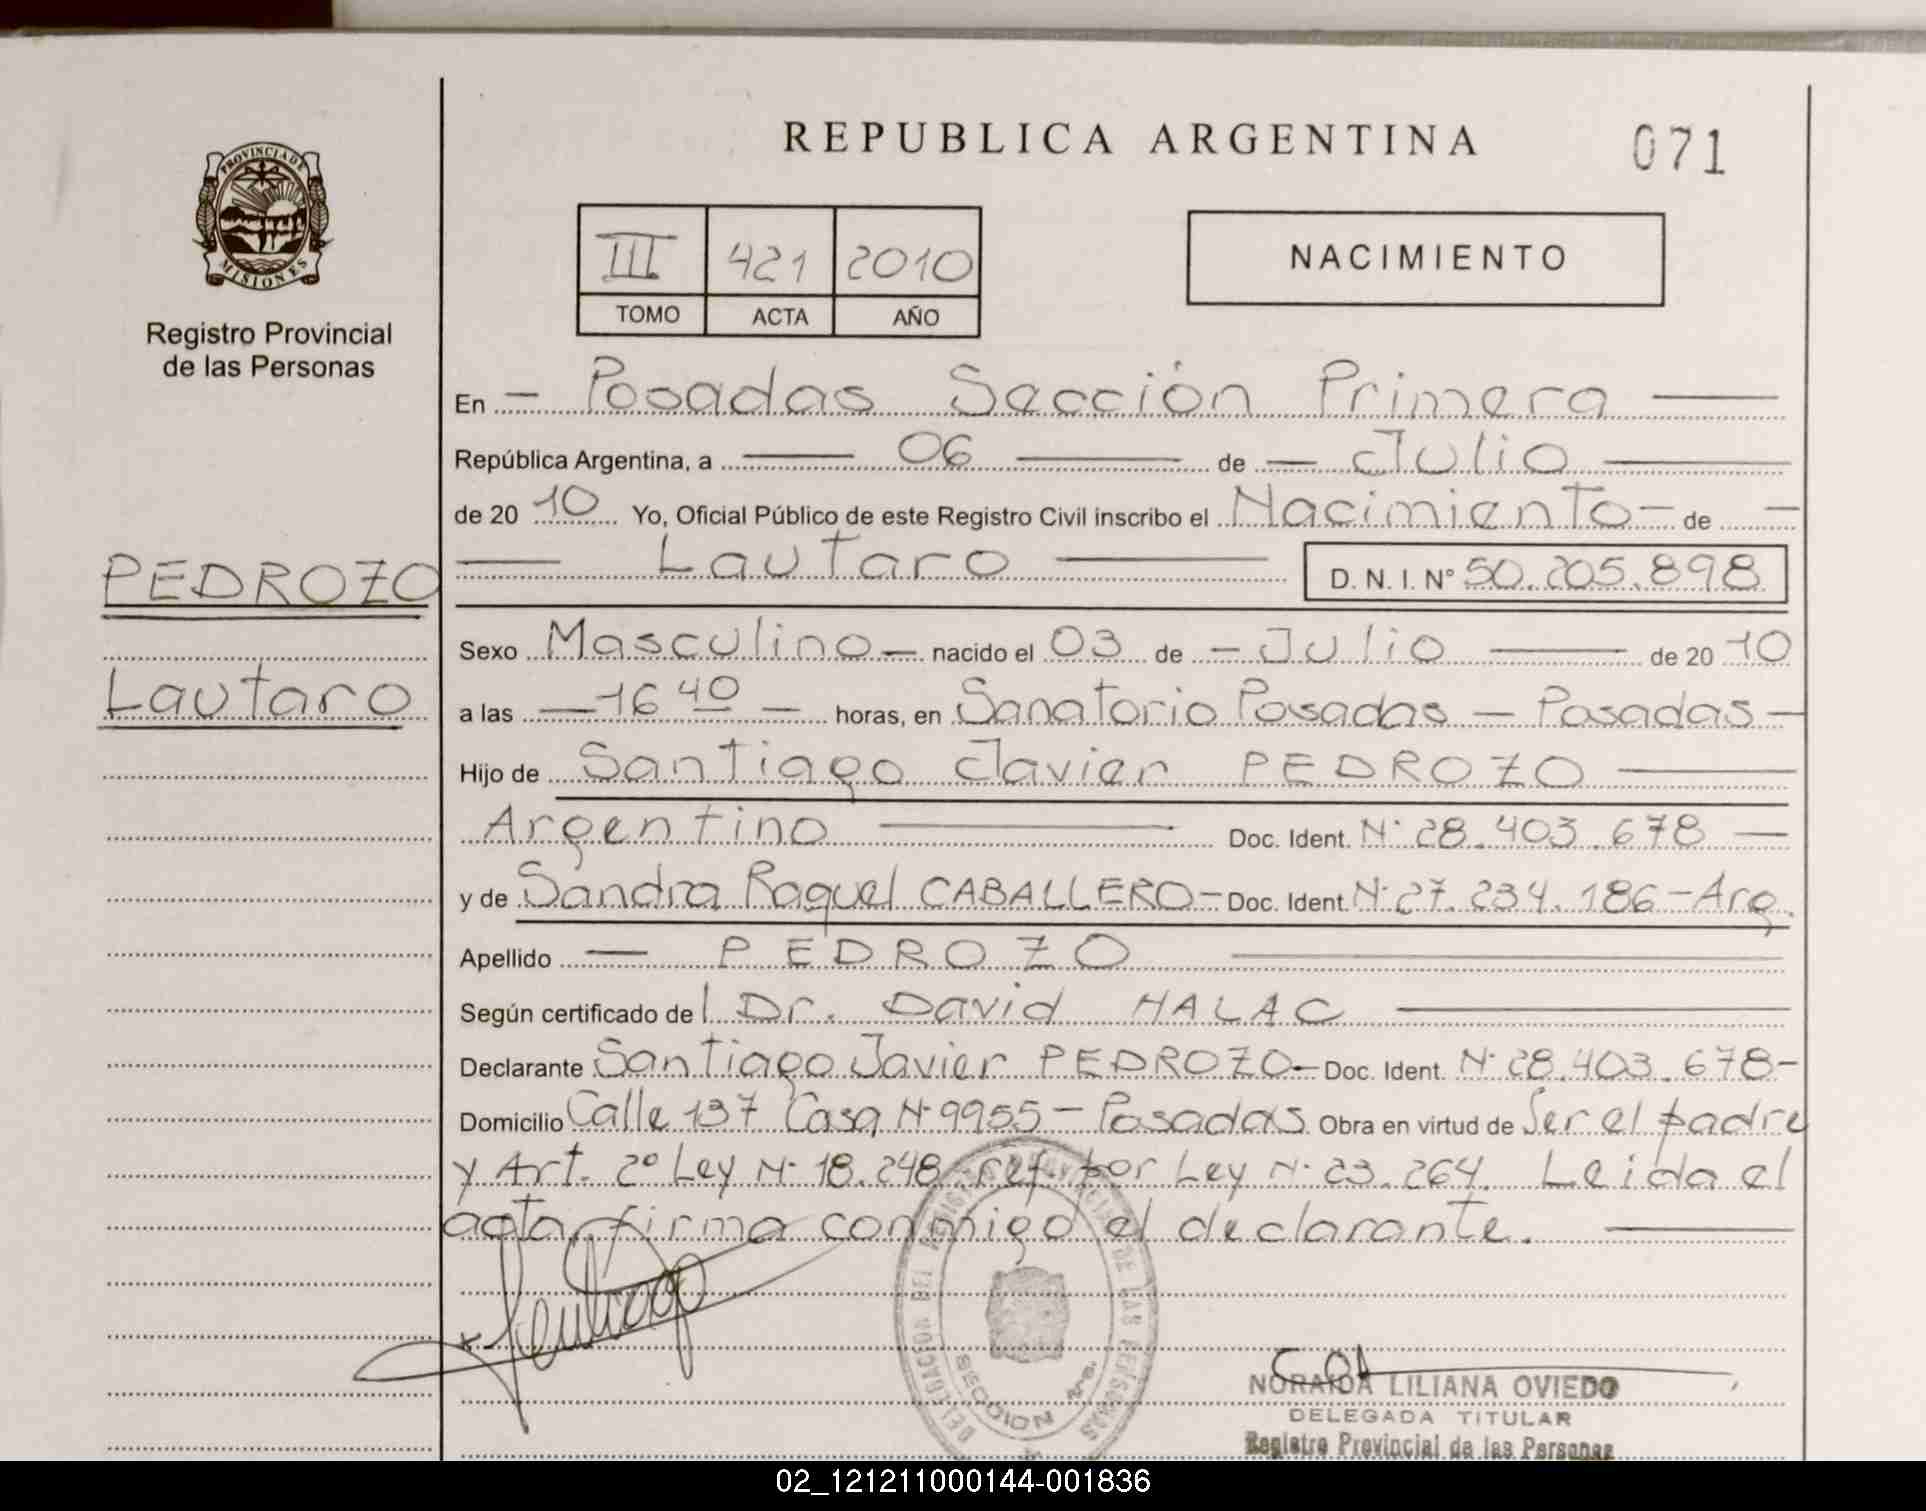 REPUBLICA ARGENTINA
071
PROVINCIA DE
MISIONES
Registro Provincial
de las Personas
III 421 2010
TOMO ACTA AÑO
NACIMIENTO
En — Posadas Sección Primera —
República Argentina, a — 06 — de — Julio —
de 20 10 Yo, Oficial Público de este Registro Civil inscribo el Nacimiento — de —
— Lautaro — D. N. I. Nº 50.205.898
PEDROZO
Lautaro
Sexo Masculino — nacido el 03 de — Julio — de 20 10
a las — 16 40 — horas, en Sanatorio Posadas — Posadas —
Hijo de Santiago Javier PEDROZO —
Argentino — Doc. Ident. Nº 28.403.678 —
y de Sandra Raquel CABALLERO — Doc. Ident. Nº 27.234.186 — Arg.
Apellido — PEDROZO —
Según certificado del Dr. David HALAC —
Declarante Santiago Javier PEDROZO — Doc. Ident. Nº 28.403.678 —
Domicilio Calle 137 Casa Nº 9955 — Posadas Obra en virtud de Ser el padre
y Art. 2º Ley Nº 18.248 ref. por Ley Nº 23.264. Leida el
acta firma conmigo el declarante. —
DELEGACION DEL REGISTRO PROVINCIAL DE LAS PERSONAS
SECCION 1ra.
Santiago
NORAIDA LILIANA OVIEDO
DELEGADA TITULAR
Registro Provincial de las Personas
02_121211000144-001836